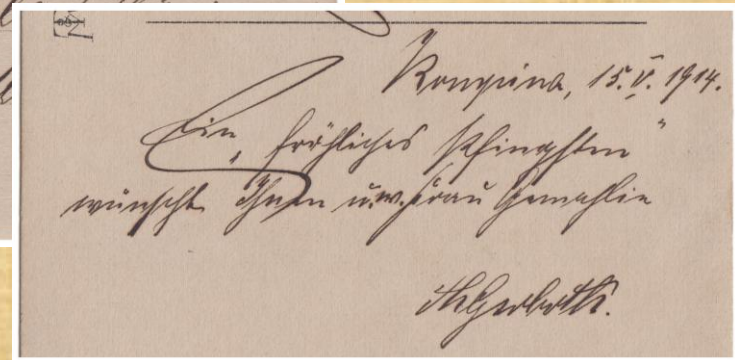 15. V. 1914.
Ein „fröhliches Pfingsten“
wünscht Ihnen u. w. Frau Gemahlin